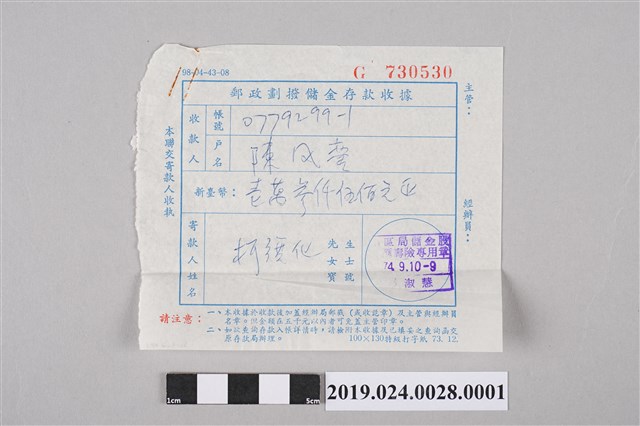 98-04-43-08
G 730530
郵政劃撥儲金存款收據
主管：
收款人
帳號
0779299-1
戶名
陳成
新臺幣：
壹萬參仟伍佰元正
經辦員：
寄款人姓名
柯
先生
女士
寶號
局儲金股
壽險專用章
74.9.10-9
淑慧
本聯交寄款人收執
請注意：
一、本收據於收款後加蓋經辦局郵戳（或收訖章）及主管與經辦員
名章。但金額在五千元以內者可免蓋主管印章。
二、如以查詢存款入帳詳情時，請檢附本收據及已填妥之查詢函交
原存款局辦理。
100×130特級打字紙 73.12.
1cm
5cm
2019.024.0028.0001